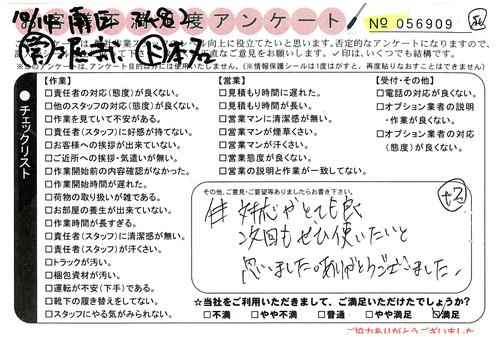 お客様 度アンケート
№ 056909
向上に役立てたいと思います。否定的なアンケートになりますので、
✓印は、いくつでも結構です。
アンケート目的以外には使用いたしません。(情報保護シールは1度がすと、再度貼りなおすことはできません)
チェックリスト
【作業】
□責任者の対応(態度)が良くない。
□他のスタッフの対応(態度)が良くない。
□作業を見ていて不安がある。
□責任者(スタッフ)に好感が持てない。
□お客様への挨拶が出来ていない。
□ご近所への挨拶・気遣いが無い。
□作業開始前の内容確認がなかった。
□作業開始時間が遅れた。
□荷物の取り扱いが雑である。
□お部屋の養生が出来ていない。
□作業時間が長すぎる。
□責任者(スタッフ)に清潔感が無い。
□責任者(スタッフ)が汗さい。
□トラックが汚い。
□梱包資材が汚い。
□運転が不安(下手)である。
□靴下の履き替えをしてない。
□スタッフにやる気がみられない。
【営業】
□見積もり時間に遅れた。
□見積もり時間が長い。
□営業マンに清潔感が無い。
□営業マンが煙草くさい。
□営業マンが汗さい。
□営業態度が良くない。
□営業の説明と作業が一致してない。
【受付・その他】
□電話の対応が良くない。
□オプション業者の説明
・作業が良くない。
□オプション業者の対応
(態度)が良くない。
その他、ご意見・ご要望等ありましたらお書き下さい。
対応がとても良く
次回もぜひ使いたいと
思いました。ありがとうございました。
☆当社をご利用いただきまして、ご満足いただけたでしょうか?
□不満 □やや不満 □普通 □やや満足 ☑満足
ご協力ありがとうございました